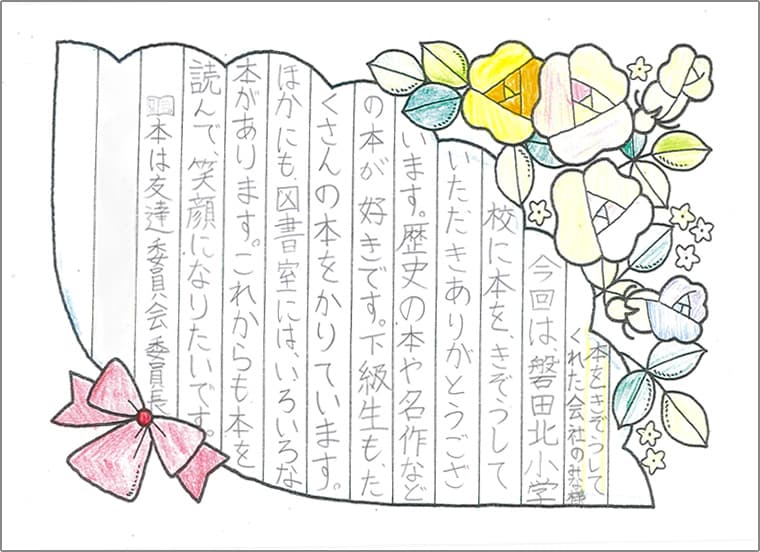 本をきぞうして
くれた会社のみな様
今回は、磐田北小学
校に本を、きぞうして
いただきありがとうござ
います。歴史の本や名作など
の本が好きです。下級生も、た
くさんの本をかりています。
ほかにも、図書室には、いろいろな
本があります。これからも本を
読んで、笑顔になりたいです。
本は友達委員会委員長